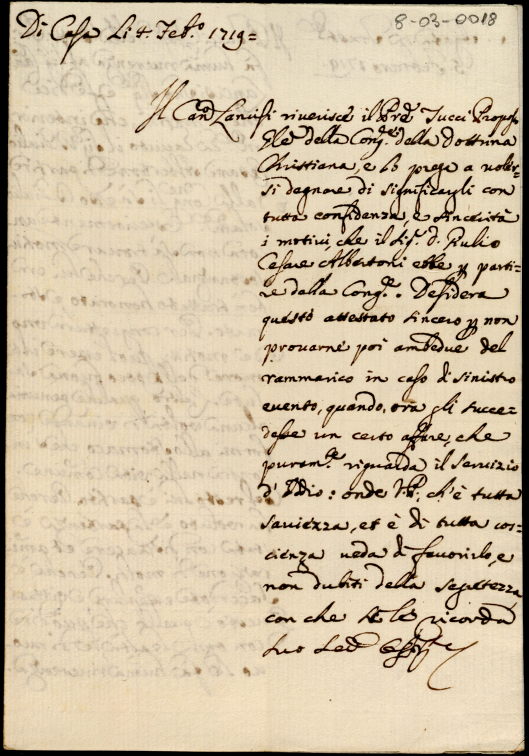 8-03-0018
Di Casa Li 4. Feb.o 1719=
Il Can.o Lancisi riverisce il Pre Tucci Propos.
Gle della Cong.e della Dottrina
Christiana, e lo prega a voler-
si degnare di significargli con
tutta confidenza, e sincerità
i motivi, che il Sig. D. Giulio
Cesare Albertoni ebbe p parti=
re dalla Cong.e. Desidera
questo attestato sincero p non
provarne poi ambedue del
rammarico in caso di sinistro
evento, quando, ora gli succe=
desse un certo affare, che
puram.e riguarda il servizio
d'Iddio: onde V.P. ch'è tutta
saviezza, et è di tutta cos=
cienza veda di favorirlo, e
non dubiti della segretezza,
con che se le ricorda
suo